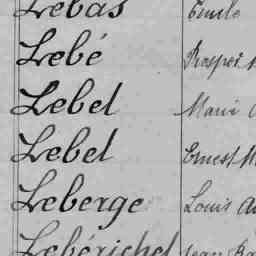 Lebas Emile
Lebé Prosper
Lebel Marie
Lebel Ernest
Leberge Louis
Lebérichel Jean